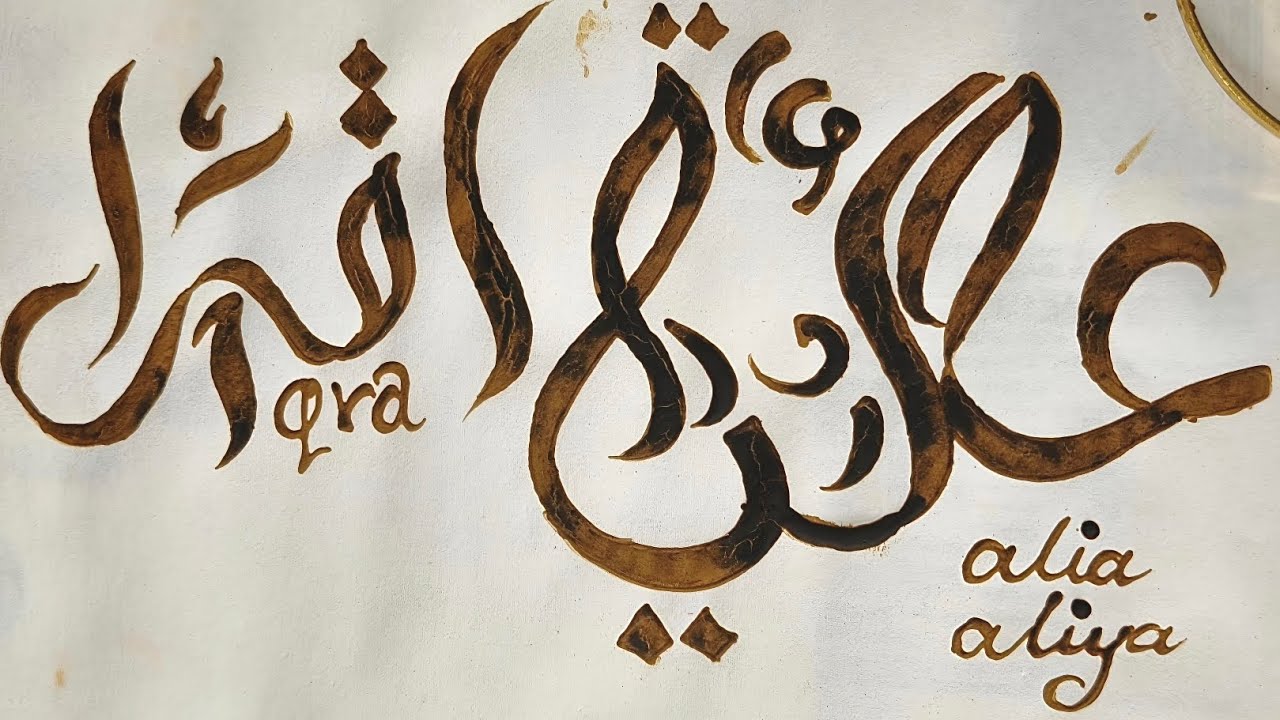 عالية اقرا
Iqra
alia
aliya